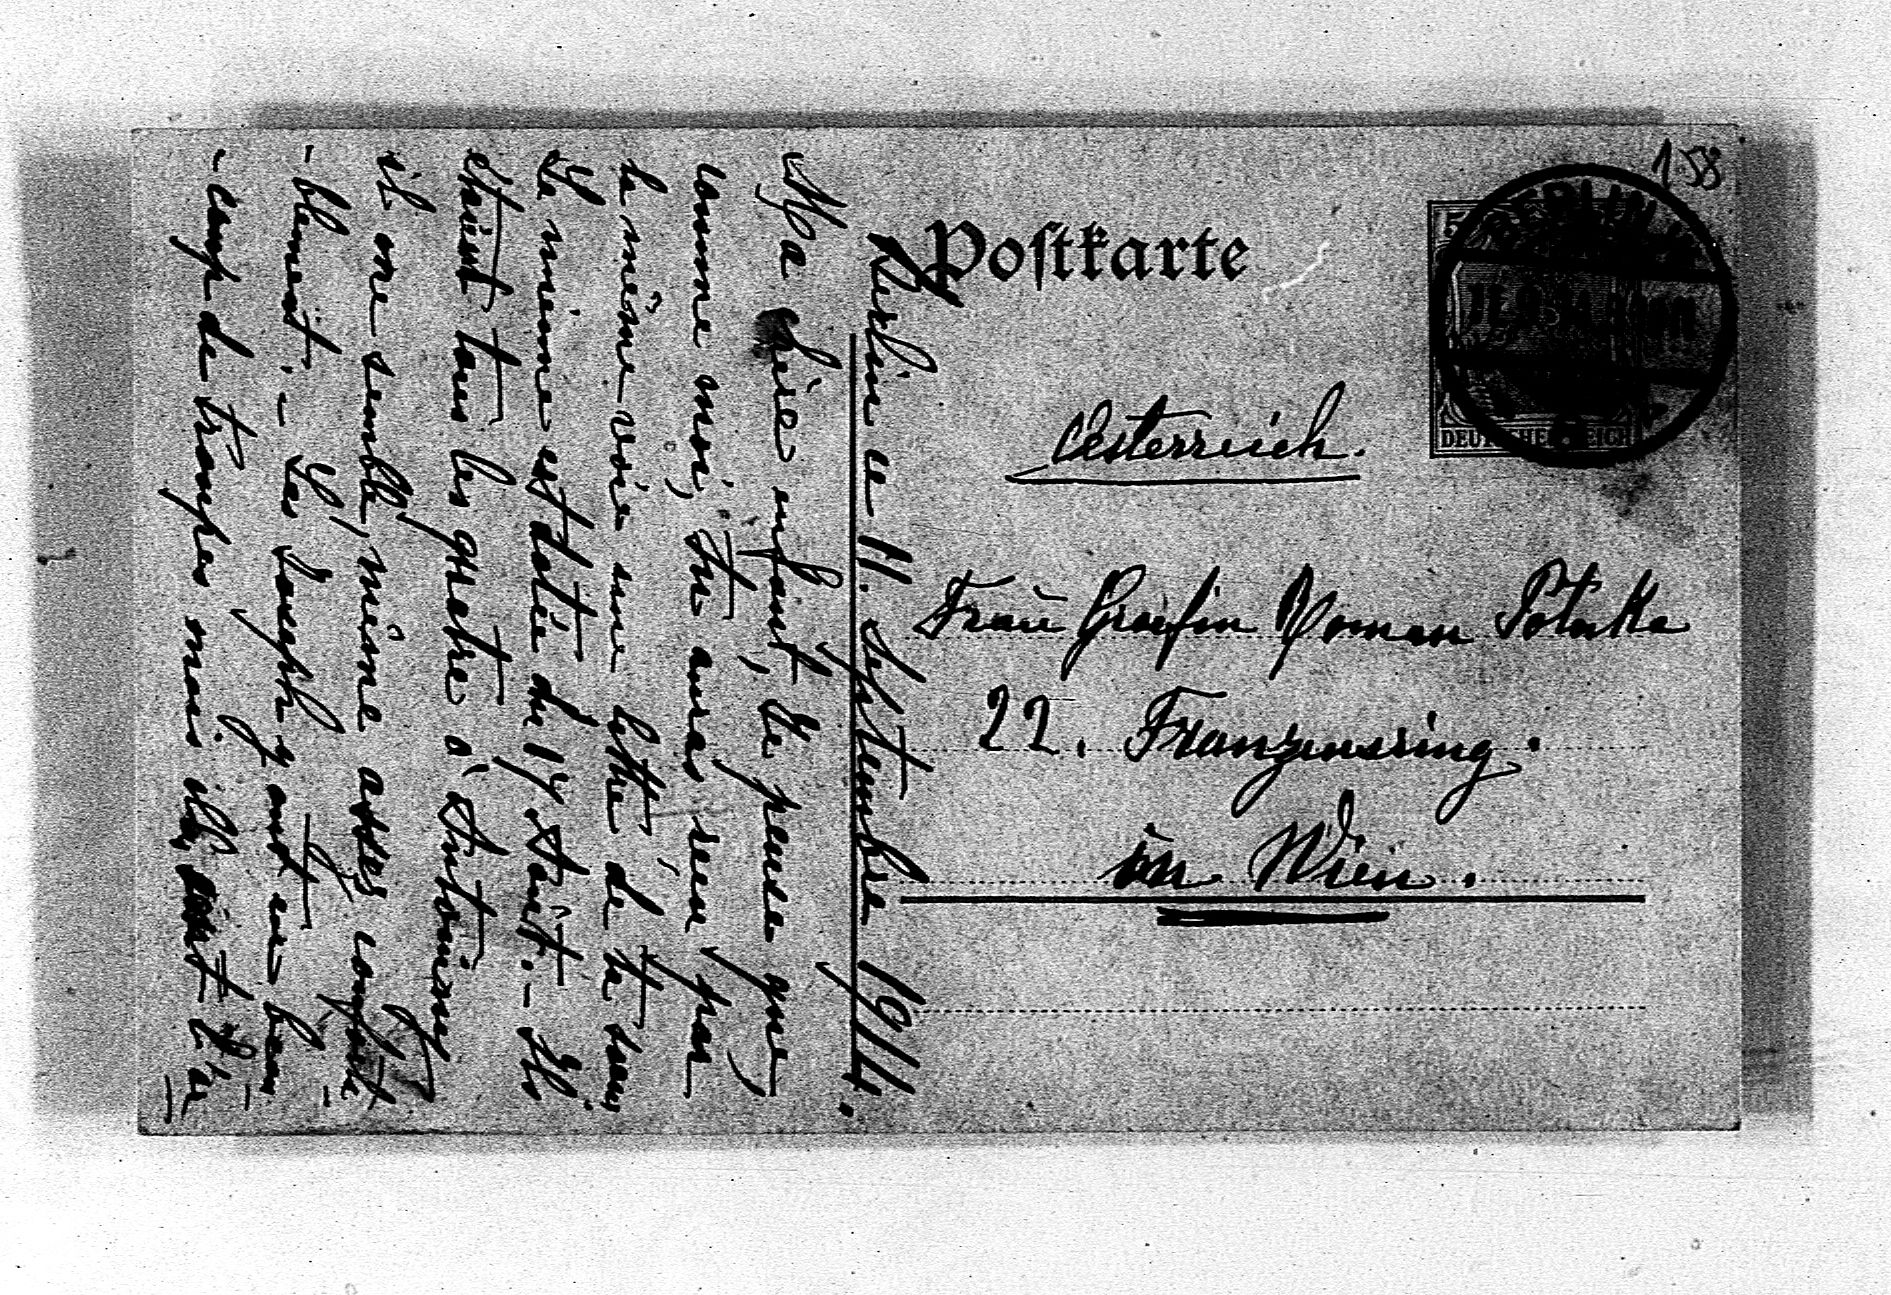 158
Postkarte
BERLIN
DEUTSCHES REICH
Oesterreich.
Frau Gräfin Roman Potocka
22. Franzensring.
in Wien.
Berlin ce 11. Septembre 1914.
Ma chère enfant, Je pense que
comme moi, tu auras reçu par
la même voie une lettre de ta sœur
La mienne est datée du 17 Août. – Ils
étaient tous les quatre à Antoniny
il me semble, même assez conforta-
-blement. – Les Cosaques y ont eu beau-
-coup de troupes mais ils ont l'air